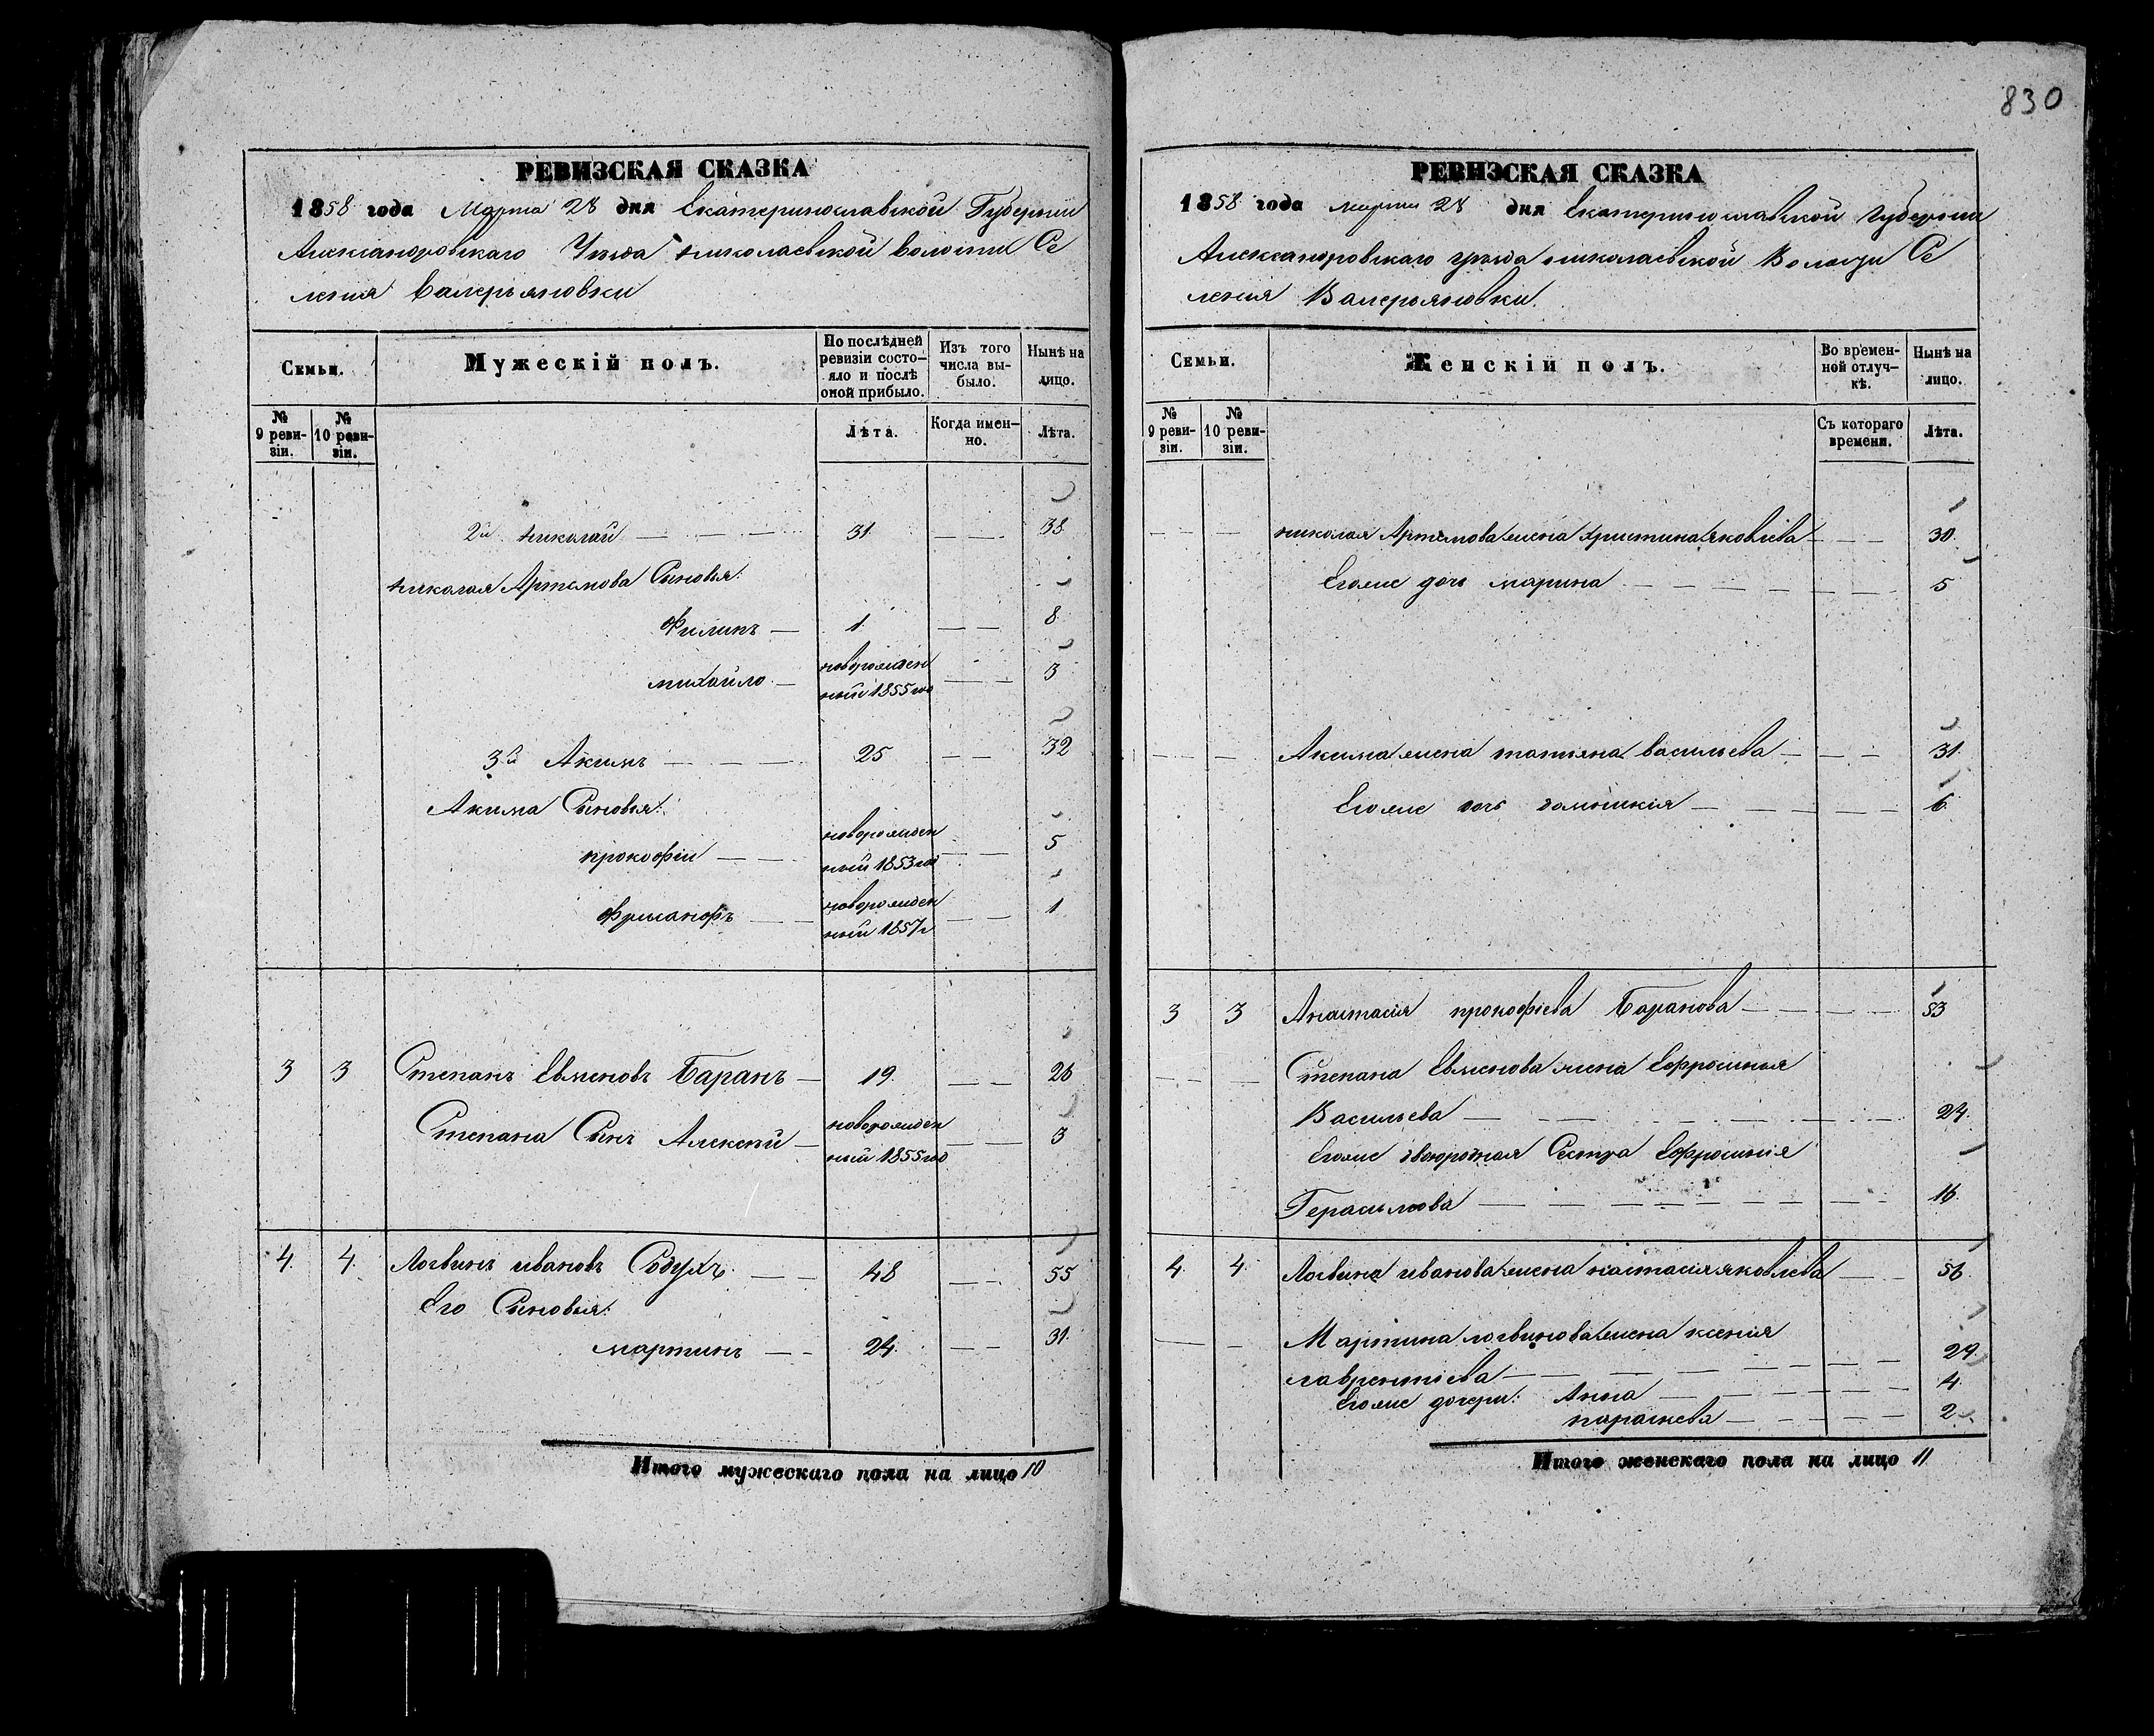 830
РЕВИЗСКАЯ СКАЗКА
1858 года Марта 28 дня Екатеринославской Губернии
Александровскаго Уезда николаевской волости Се
ления Валерьяновки
Семьи.
Мужескій полъ.
По послѣдней ревизіи состо-яло и послѣ оной прибыло.
Изъ того числа вы-было.
Нынѣ на лицо.
№ 9 реви-зіи.
№ 10 реви-зіи.
Лѣта.
Когда имен-но.
Лѣта.
2й николай — 31 — 38
николая Артемова Сыновья:
Филипъ — 1 — 8
михайло — новорожден
ный 1855 го — 3
3й Акимъ — 25 — 32
Акима Сыновья:
прокофіи — новорожден
ный 1853 го — 5
— новорожден
ный 1857 г — 1
3 3 Степанъ Евменовъ Баранъ — 19 — 26
Степана Сынъ Алексей — новорожден
ный 1855 го — 3
4 4 Логвинъ ивановъ — 48 — 55
Его Сыновья:
мартинъ — 24 — 31
Итого мужескаго пола на лицо 10
РЕВИЗСКАЯ СКАЗКА
1858 года марта 28 дня Екатеринославской Губернии
Александровскаго уезда николаевской Волости Се
ления Валерьяновки.
Семьи.
Женскій полъ.
Во времен-ной отлуч-кѣ.
Нынѣ на лицо.
№ 9 реви-зіи.
№ 10 реви-зіи.
Съ котораго времени.
Лѣта.
николая Артемова жена Христина яковлева — 30
Егоже дочь марина — 5
Акима жена татьяна васильева — 31
Егоже дочь — 6
3 3 Анастасія прокофіева Баранова — 53
Степана Евменова жена Ефросинья
Васильева — 24
Егоже двоюродная Сестра Ефросинія
Герасимова — 16
4 4 Логвина иванова жена настасія яковлева — 56
Мартина логвинова жена ксенія
лаврентіева — 29
Егоже дочери: Анна — 4
параскева — 2
Итого женскаго пола на лицо 11